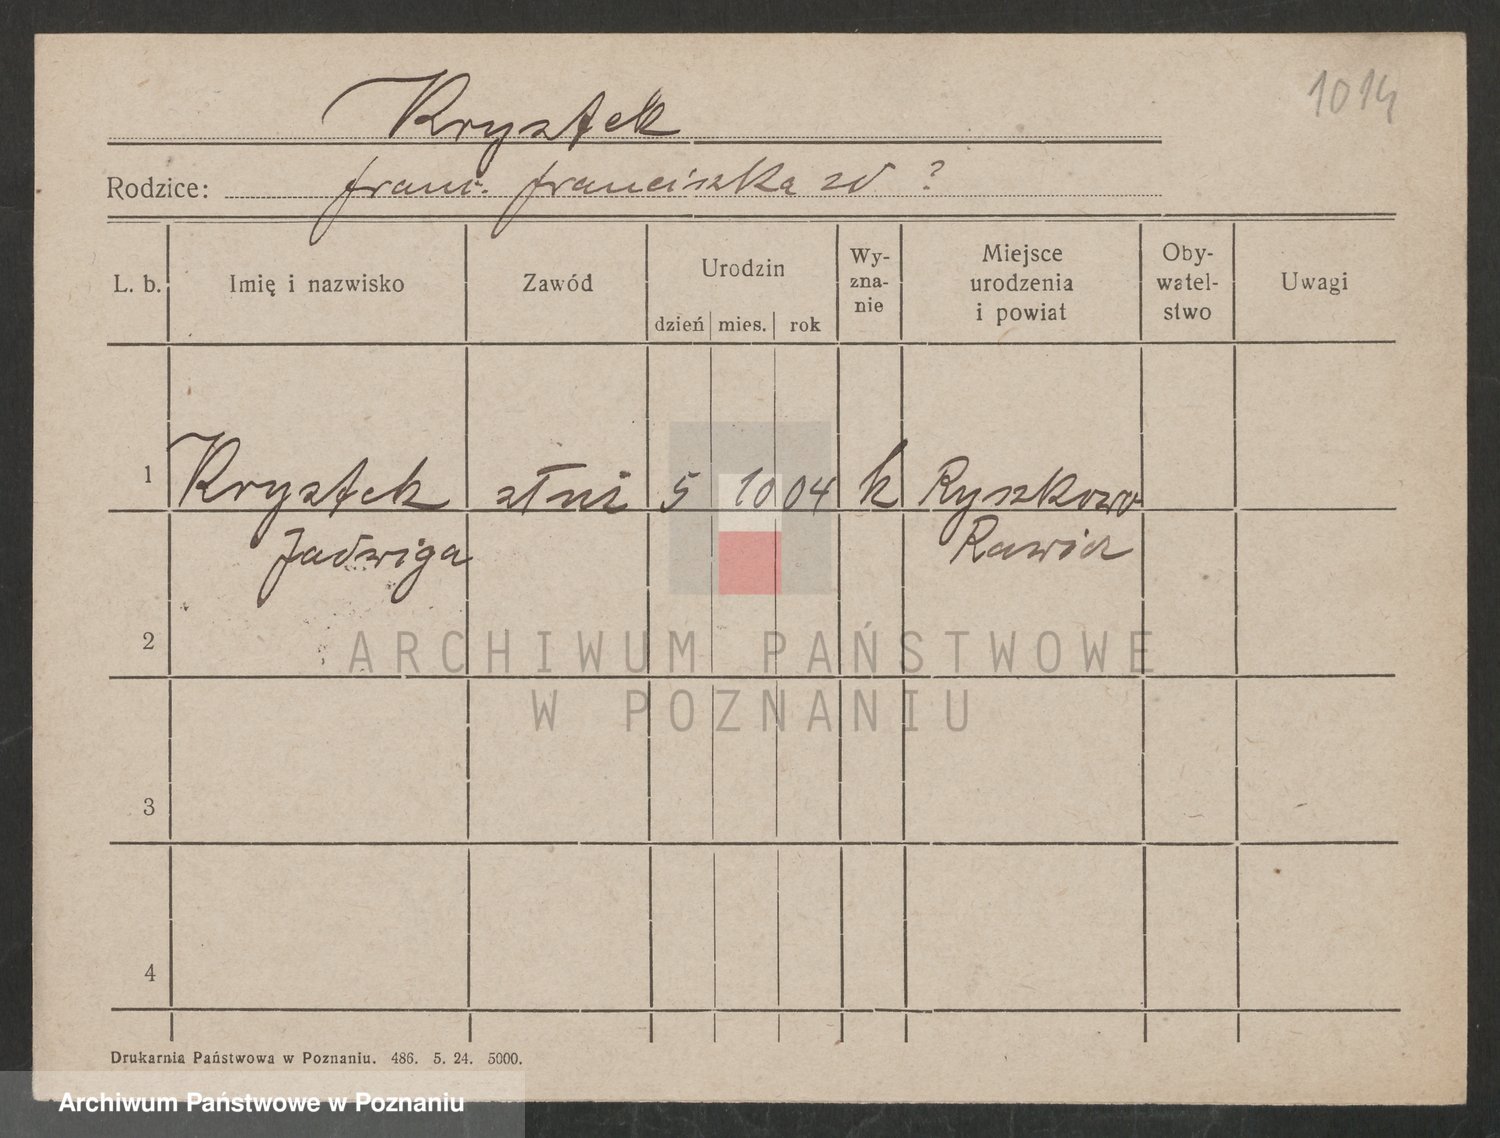 1014
Krysztek
Rodzice: franc. franciszka zd ?
L. b. Imię i nazwisko Zawód Urodzin dzień mies. rok Wy-znanie Miejsce urodzenia i powiat Oby-watel-stwo Uwagi
1 Krysztek 5 10 04 k Ryszkowo
Jadwiga Rawicz
2
3
4
Drukarnia Państwowa w Poznaniu. 486. 5. 24. 5000.
ARCHIWUM PAŃSTWOWE
W POZNANIU
Archiwum Państwowe w Poznaniu